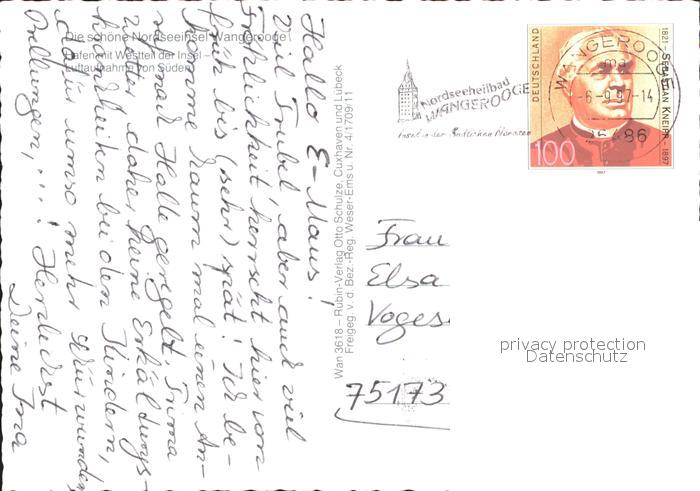 Die schöne Nordseeinsel Wangerooge
Hafen mit Westteil der Insel –
Luftaufnahme von Süden
Hallo E-Maus!
Viel Trubel, aber auch viel
Fröhlichkeit herrscht hier von
früh bis (sehr) spät! Ich be-
komme kaum mal einen An-
ruf, mal Halle geregelt. Prima
Wetter, daher keine Erkältungs-
krankheiten bei den Kindern,
dafür umso mehr Kniewunden,
Prellungen, ...! Herzlichst
Deine Ina
Wan 3618 – Rubin-Verlag Otto Schulze, Cuxhaven und Lübeck
Freigeg. v. d. Bez.-Reg. Weser-Ems u. Nr. 4/1709/11
Nordseeheilbad
WANGEROOGE
Insel in der südlichen Nordsee
WANGEROOGE
ma
-6-9.97-14
26486
DEUTSCHLAND
1821 – SEBASTIAN KNEIPP – 1897
100
1997
Frau
Elsa
Voges
75173
privacy protection
Datenschutz